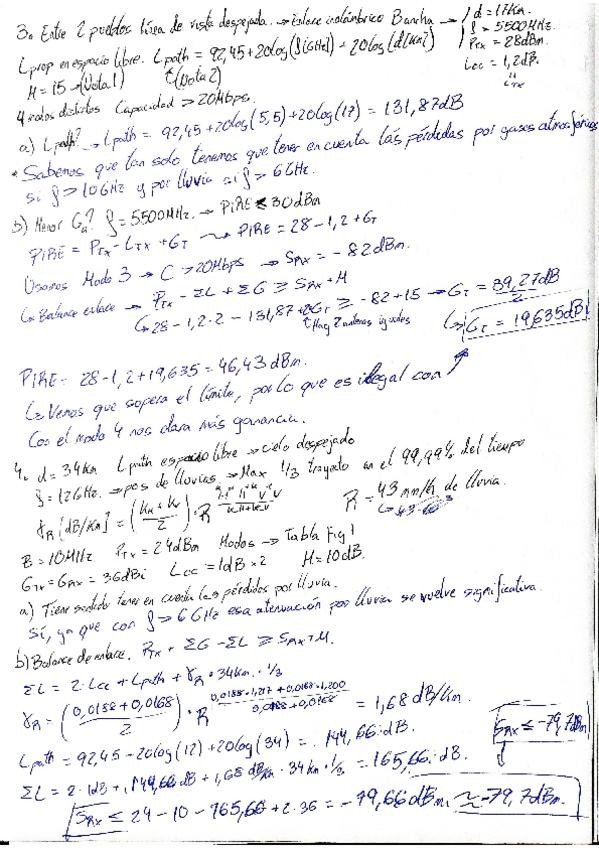 3. Entre 2 pueblos línea de vista despejada. → Enlace inalámbrico Bancha → d = 17Km.
f = 5500MHz.
PTX = 28dBm.
Lcc = 1,2dB.
LTX
Lprop en espacio libre. Lpath = 92,45+20log(f[GHz]) + 20log(d[Km])
M = 15 → (Nota 1) (Nota 2)
4 modos distintos Capacidad > 20Mbps.
a) Lpath? → Lpath = 92,45+20log(5,5)+20log(17) = 131,87dB
* Sabemos que tan solo tenemos que tener en cuenta las pérdidas por gases atmosféricos
si f > 10GHz y por lluvia si f > 6GHz.
b) Menor Ga? f = 5500MHz. → PiRE < 30dBm
PiRE = PTX - LTX + GT → PiRE = 28-1,2+GT
Usamos Modo 3 → C > 20Mbps → SRX = -82dBm.
↳ Balance enlace → PTX - ΣL + ΣG ≥ SRX + M
↳ 28-1,2·2 - 131,87+2GT ≥ -82+15 → GT = 39,27dB / 2
Hay 2 antenas iguales ↳ GT = 19,635dBi
PiRE = 28-1,2+19,635 = 46,43dBm.
↳ Vemos que supera el límite, por lo que es ilegal con
Con el modo 4 nos dará más ganancia.
4. d = 34Km Lpath espacio libre → cielo despejado
f = 12GHz. → pos de lluvias. → Max 1/3 trayecto en el 99,99% del tiempo
γR [dB/Km] = (KH + KV / 2) · R R = 43 mm/h de lluvia.
B = 10MHz PTX = 24dBm Modos → Tabla Fig 1
GTX = GRX = 36dBi Lcc = 1dB × 2 M = 10dB.
a) Tiene sentido tener en cuenta las pérdidas por lluvia.
Sí, ya que con f > 6GHz esa atenuación por lluvia se vuelve significativa.
b) Balance de enlace. PTX + ΣG - ΣL ≥ SRX + M.
ΣL = 2·Lcc + Lpath + γR · 34Km · 1/3
γR = (0,0188+0,0168 / 2) · R 0,0188·1,217+0,0168·1,200 / 0,0188+0,0168 = 1,68 dB/Km
Lpath = 92,45 - 20log(12)+20log(34) = 144,66 dB. SRX ≤ -79,7dBm
ΣL = 2·1dB + 144,66dB + 1,68 dB/Km · 34Km · 1/3 = 165,66 dB.
SRX ≤ 24-10-165,66+2·36 = -79,66dBm ≃ -79,7dBm.